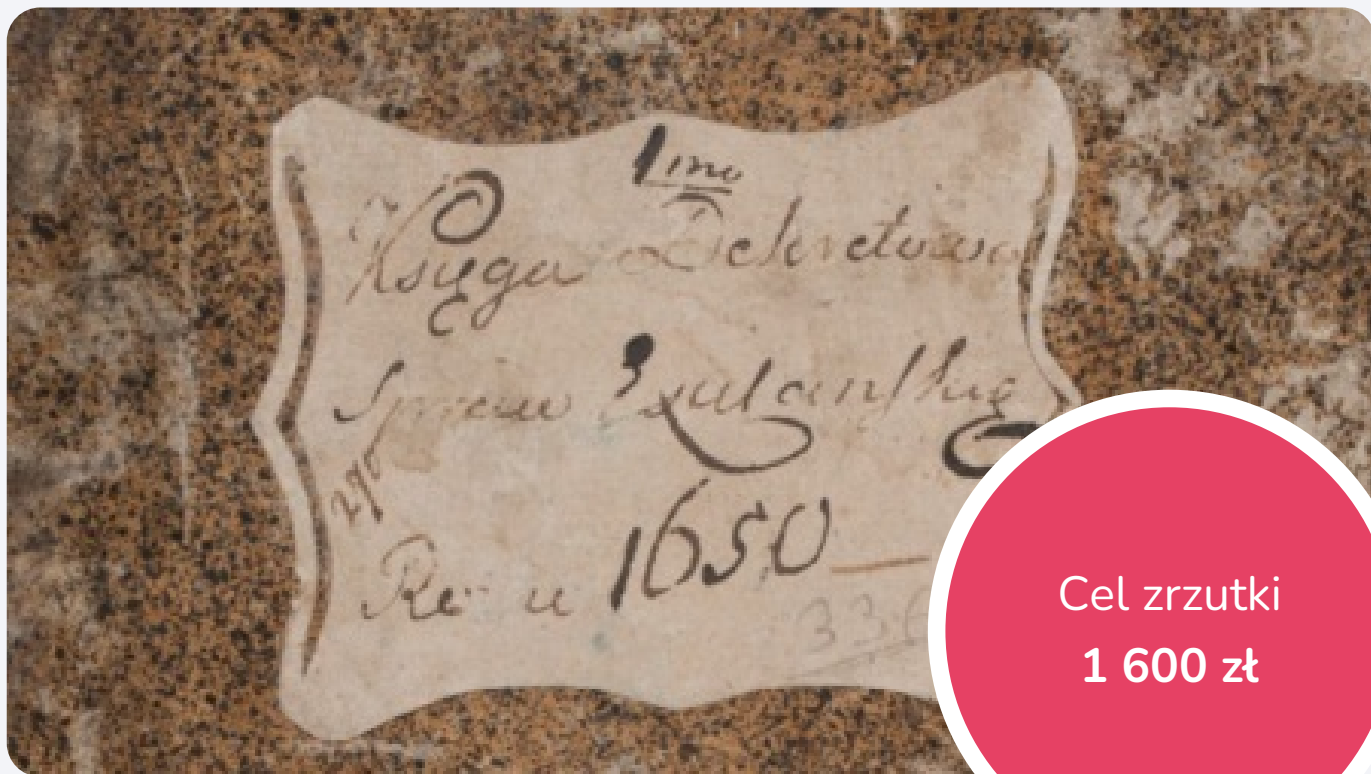 1mo
Księga Dekretowa
Spraw
Roku 1650
336
Cel zrzutki
1 600 zł